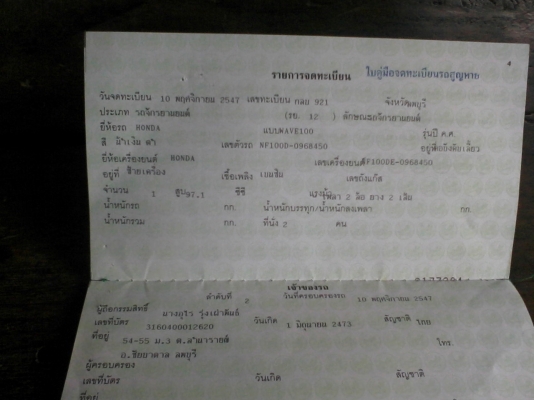 รายการจดทะเบียน ใบคู่มือจดทะเบียนรถสูญหาย
วันจดทะเบียน 10 พฤศจิกายน 2547 เลขทะเบียน กลย 921 จังหวัดลพบุรี
ประเภท รถจักรยานยนต์ (รย. 12 ) ลักษณะรถจักรยานยนต์
ยี่ห้อรถ HONDA แบบ WAVE100 รุ่นปี ค.ศ.
สี เลขตัวรถ NF100D-0968450 อยู่ที่
ยี่ห้อเครื่องยนต์ HONDA เลขเครื่องยนต์ NF100DE-0968450
อยู่ที่ ซ้ายเครื่อง เชื้อเพลิง เบนซิน เลขถังแก๊ส
จำนวน 1 สูบ 97.1 ซีซี แรงม้า เพลา 2 ล้อ ยาง 2 เส้น
น้ำหนักรถ กก. น้ำหนักบรรทุก/น้ำหนักลงเพลา กก.
น้ำหนักรวม กก. ที่นั่ง 2 คน
เจ้าของรถ
ลำดับที่ 2 วันที่ครอบครองรถ 10 พฤศจิกายน 2547
ผู้ถือกรรมสิทธิ์
เลขที่บัตร 3160400012620 วันเกิด 1 มิถุนายน 2473 สัญชาติ ไทย
ที่อยู่ 54-55 ม.3 ต.ลำนารายณ์ โทร.
อ.ชัยบาดาล ลพบุรี
ผู้ครอบครอง
เลขที่บัตร วันเกิด สัญชาติ
ที่อยู่